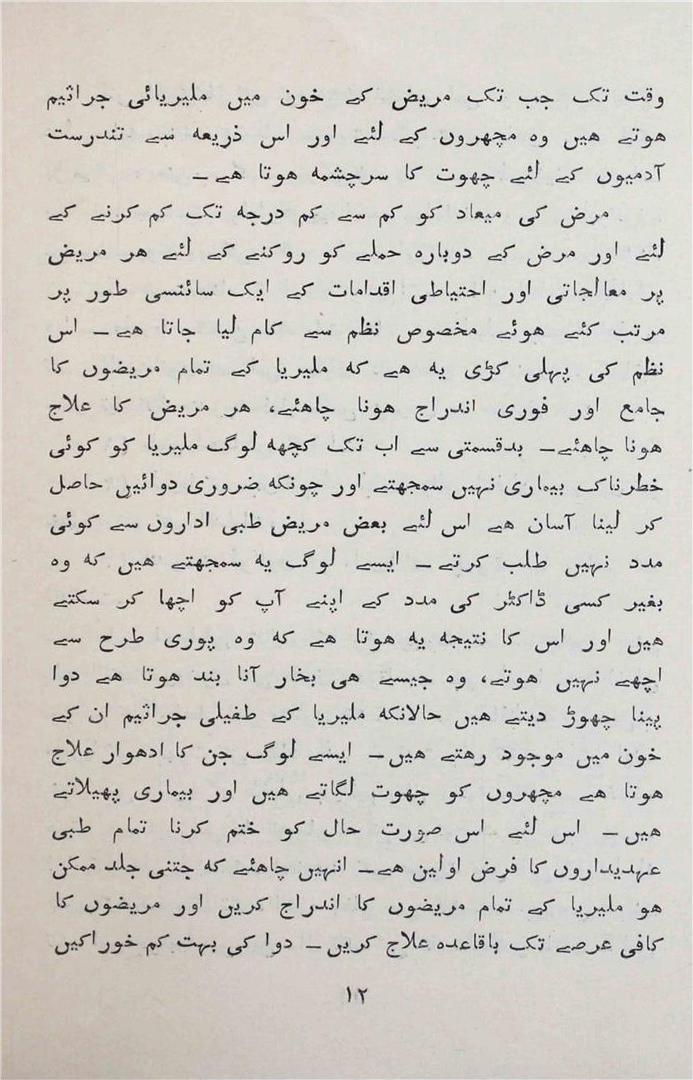 وقت تک جب تک مریض کے خون میں ملیریائی جراثیم
ھوتے ھیں وہ مچھروں کے لئے اور اس ذریعہ سے تندرست
آدمیوں کے لئے چھوت کا سرچشمہ ھوتا ھے –
مرض کی میعاد کو کم سے کم درجہ تک کم کرنے کے
لئے اور مرض کے دوبارہ حملے کو روکنے کے لئے ھر مریض
پر معالجاتی اور احتیاطی اقدامات کے ایک سائنسی طور پر
مرتب کئے ھوئے مخصوص نظم سے کام لیا جاتا ھے – اس
نظم کی پہلی کڑی یہ ھے کہ ملیریا کے تمام مریضوں کا
جامع اور فوری اندراج ھونا چاھئے، ھر مریض کا علاج
ھونا چاھئے – بدقسمتی سے اب تک کچھہ لوگ ملیریا کو کوئی
خطرناک بیماری نہیں سمجھتے اور چونکہ ضروری دوائیں حاصل
کر لینا آسان ھے اس لئے بعض مریض طبی اداروں سے کوئی
مدد نہیں طلب کرتے – ایسے لوگ یہ سمجھتے ھیں کہ وہ
بغیر کسی ڈاکٹر کی مدد کے اپنے آپ کو اچھا کر سکتے
ھیں اور اس کا نتیجہ یہ ھوتا ھے کہ وہ پوری طرح سے
اچھے نہیں ھوتے، وہ جیسے ھی بخار آنا بند ھوتا ھے دوا
پینا چھوڑ دیتے ھیں حالانکہ ملیریا کے طفیلی جراثیم ان کے
خون میں موجود رھتے ھیں – ایسے لوگ جن کا ادھوار علاج
ھوتا ھے مچھروں کو چھوت لگاتے ھیں اور بیماری پھیلاتے
ھیں – اس لئے اس صورت حال کو ختم کرنا تمام طبی
عہدیداروں کا فرض اولین ھے – انہیں چاھئے کہ جتنی جلد ممکن
ھو ملیریا کے تمام مریضوں کا اندراج کریں اور مریضوں کا
کافی عرصے تک باقاعدہ علاج کریں – دوا کی بہت کم خوراکیں
۱۲